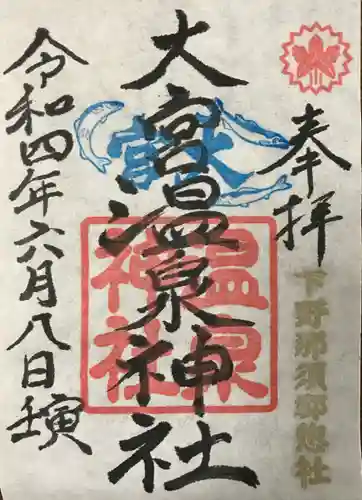 奉拝
下野那須郡惣社
大宮温泉神社
温泉
神社
令和四年六月八日壬寅